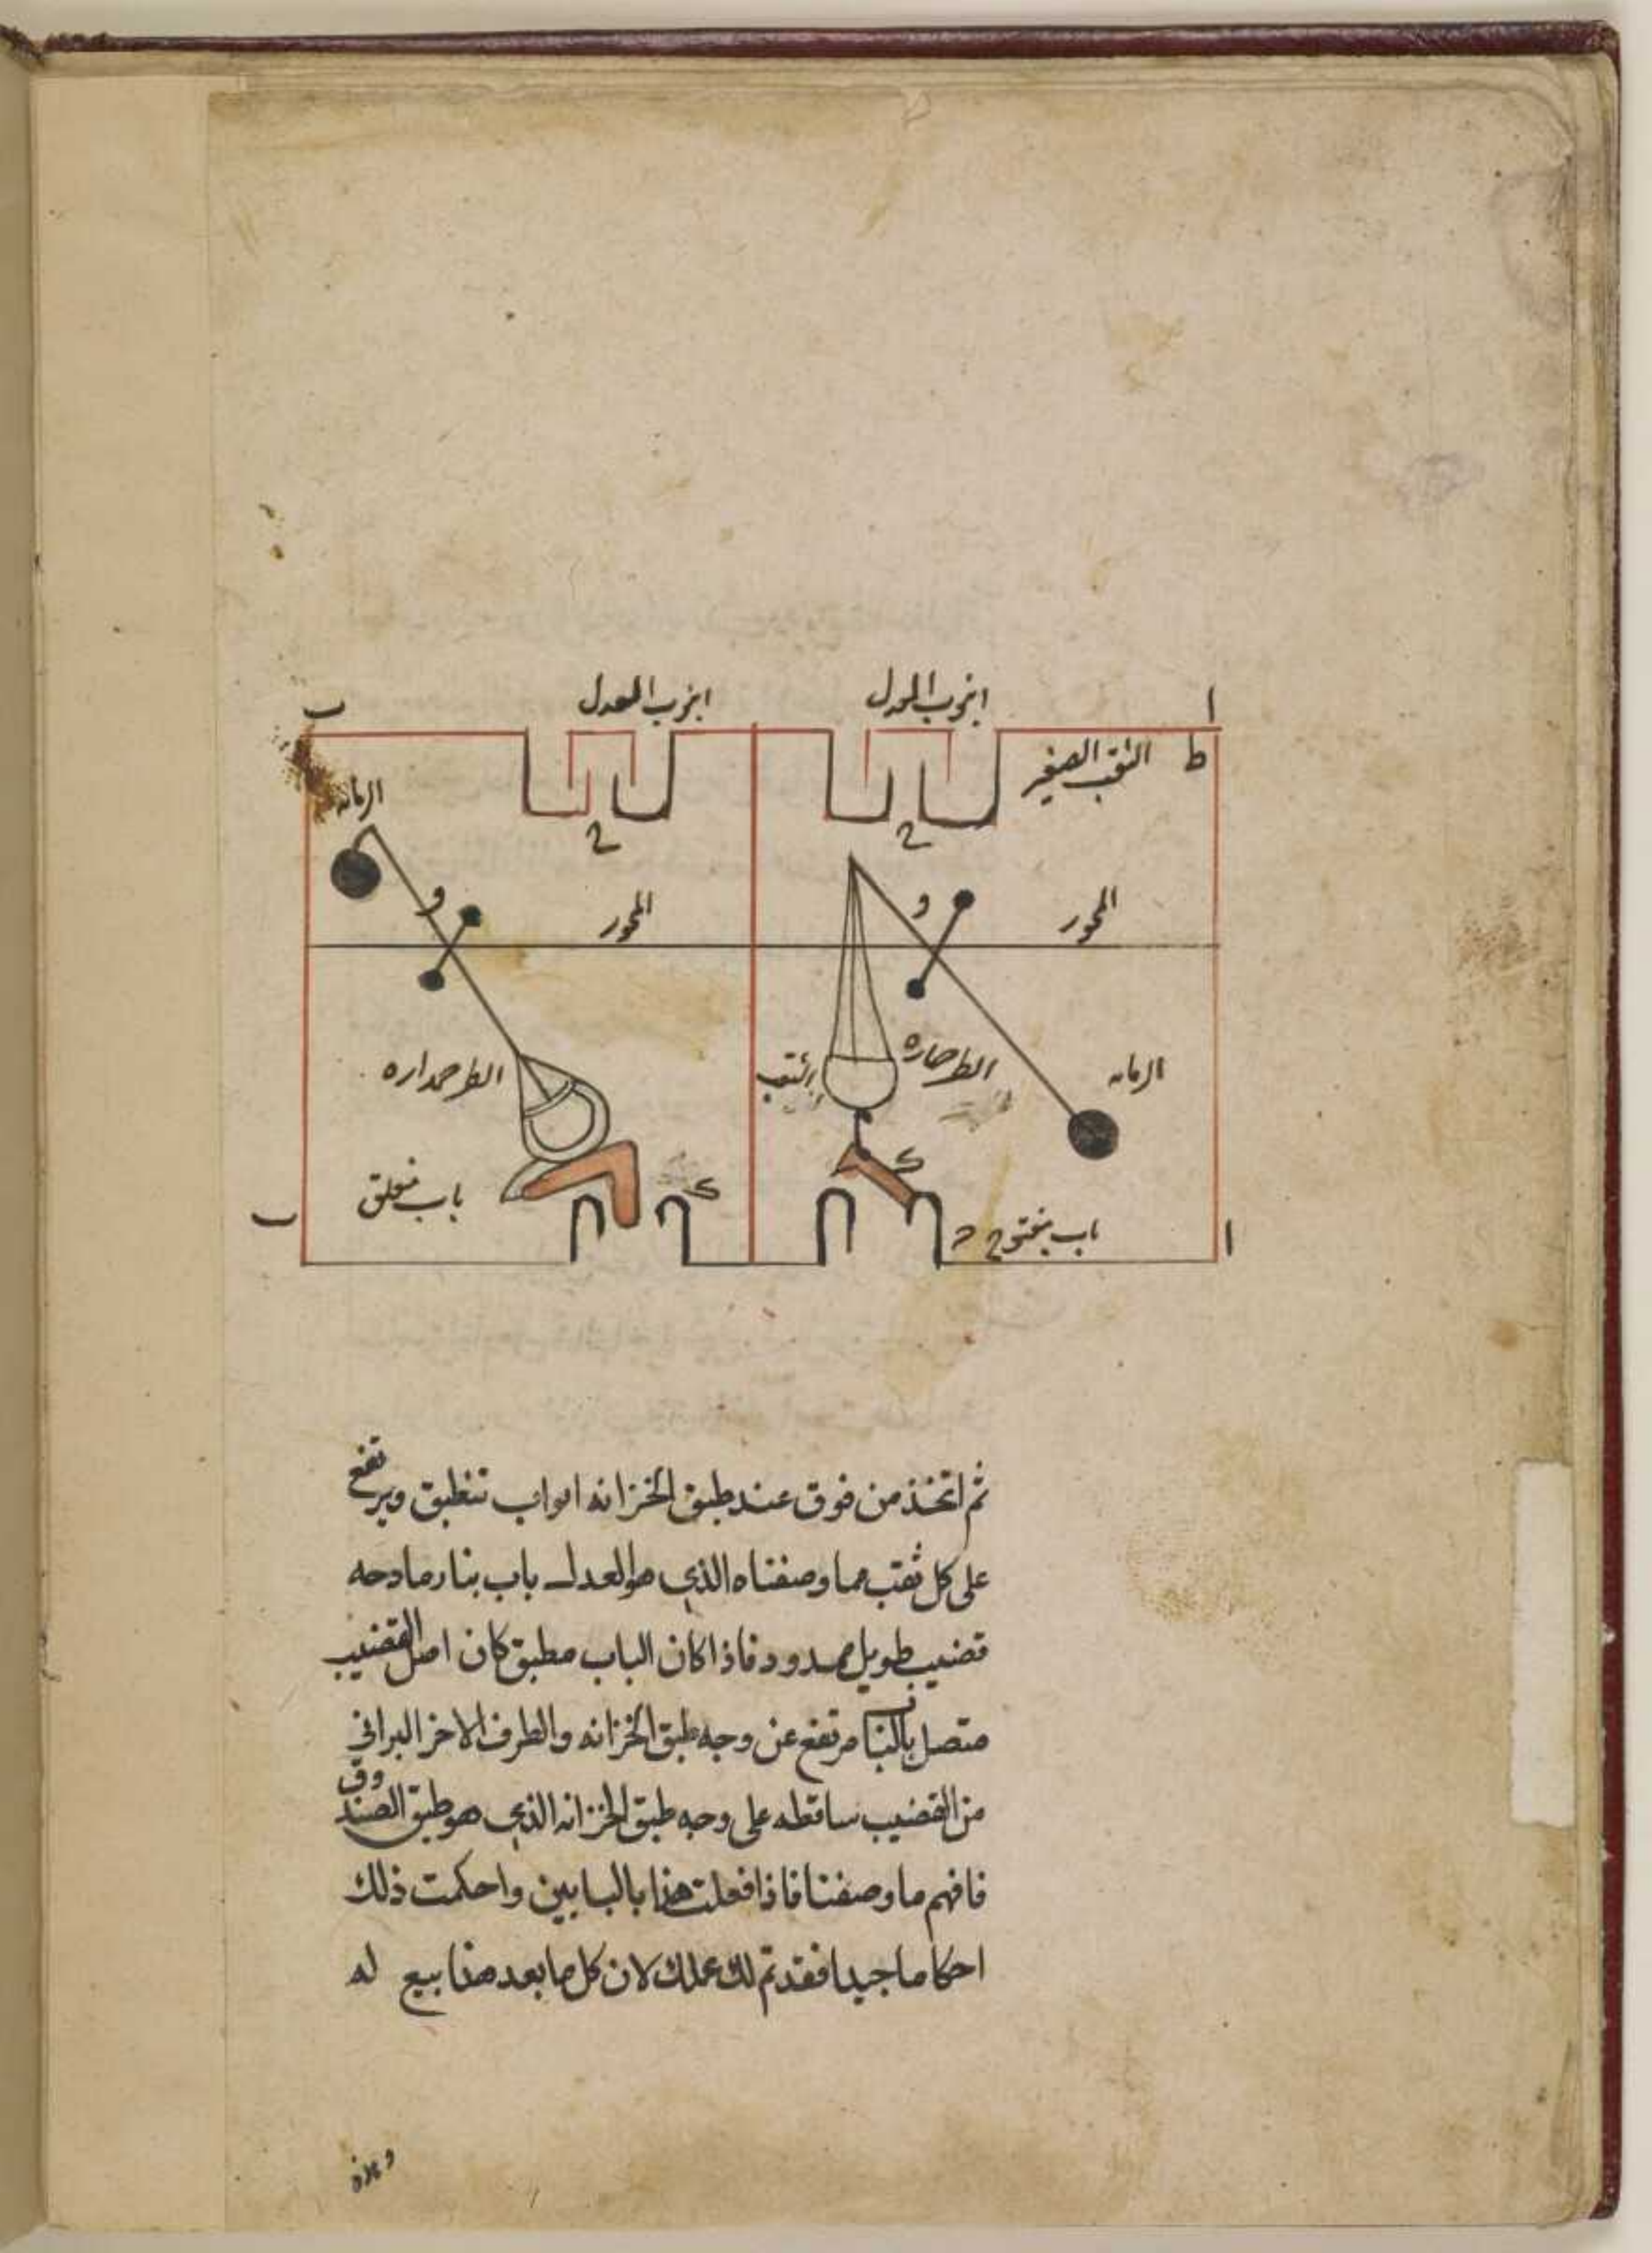 ا
انبوب المعدل
انبوب المعدل
ب
ط
الثقب الصغير
ح
ح
الرمانه
المحور
و
المحور
و
الرمانه
الطرجهاره
الثقب
الطرجهاره
باب مفتوح
د
باب مغلق
ا
ب
ثم اتخذ من فوق عند طبق الخزانه ابواب تنطبق ويرتفع
على كل ثقب مما وصفناه الذي هو المعدل باب بنا رمادحه
قضيب طويل ممدود فاذا كان الباب مطبق كان اصل القضيب
متصل بالبنا مرتفع عن وجه طبق الخزانه والطرف الاخر البراني
من القضيب ساقطه على وجه طبق الخزانه الذي هو طبق الصندوق
فافهم ما وصفنا فاذا فعلت هذا بالبابين واحكمت ذلك
احكاما جيدا فقد تم لك عملك لان كل ما بعد هذا بيع له